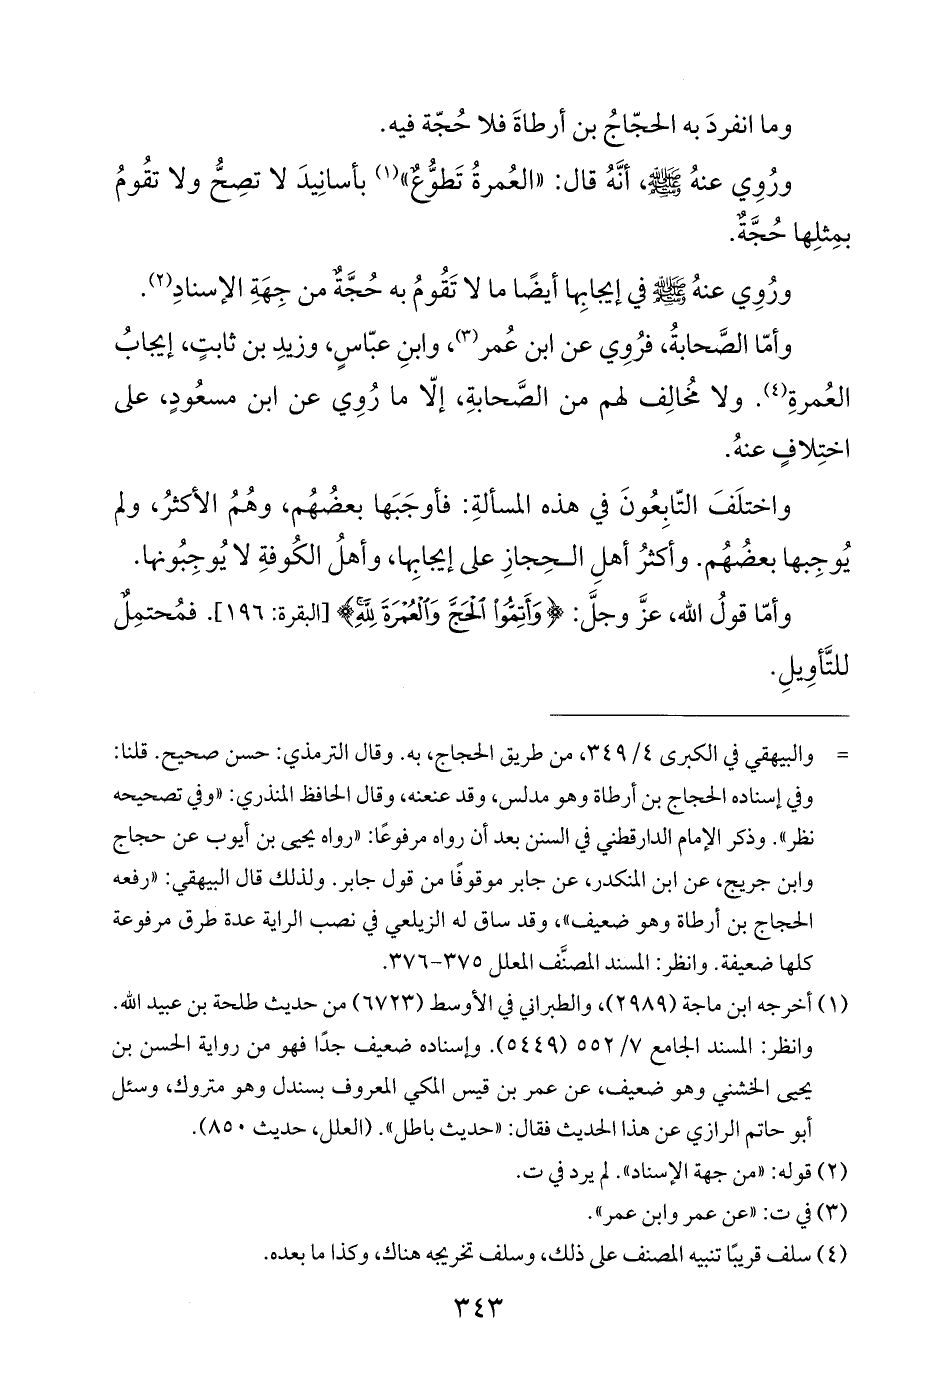 وما انفردَ به الحجّاجُ بن أرطاةَ فلا حُجّة فيه.
ورُوِي عنهُ ﷺ، أنَّهُ قال: «العُمرةُ تَطوُّعٌ»(١) بأسانِيدَ لا تصِحُّ ولا تقُومُ
بمِثلِها حُجَّةٌ.
ورُوِي عنهُ ﷺ في إيجابِها أيضًا ما لا تَقُومُ به حُجَّةٌ من جِهَةِ الإسنادِ(٢).
وأمّا الصَّحابةُ، فرُوِي عن ابن عُمر(٣)، وابنِ عبّاسٍ، وزيدِ بن ثابتٍ، إيجابُ
العُمرةِ(٤). ولا مُخالِف لهم من الصَّحابةِ، إلّا ما رُوِي عن ابن مسعُودٍ، على
اختِلافٍ عنهُ.
واختلَفَ التّابِعُونَ في هذه المسألةِ: فأوجَبَها بعضُهُم، وهُمُ الأكثرُ، ولم
يُوجِبها بعضُهُم. وأكثرُ أهلِ الحِجازِ على إيجابِها، وأهلُ الكُوفةِ لا يُوجِبُونها.
وأمّا قولُ الله، عزَّ وجلَّ: ﴿وَأَتِمُّوا۟ ٱلْحَجَّ وَٱلْعُمْرَةَ لِلَّهِ﴾ [البقرة: ١٩٦]. فمُحتمِلٌ
للتَّأوِيلِ.
= والبيهقي في الكبرى ٤/ ٣٤٩، من طريق الحجاج، به. وقال الترمذي: حسن صحيح. قلنا:
وفي إسناده الحجاج بن أرطاة وهو مدلس، وقد عنعنه، وقال الحافظ المنذري: «وفي تصحيحه
نظر». وذكر الإمام الدارقطني في السنن بعد أن رواه مرفوعًا: «رواه يحيى بن أيوب عن حجاج
وابن جريج، عن ابن المنكدر، عن جابر موقوفًا من قول جابر. ولذلك قال البيهقي: «رفعه
الحجاج بن أرطاة وهو ضعيف»، وقد ساق له الزيلعي في نصب الراية عدة طرق مرفوعة
كلها ضعيفة. وانظر: المسند المصنَّف المعلل ٣٧٥-٣٧٦.
(١) أخرجه ابن ماجة (٢٩٨٩)، والطبراني في الأوسط (٦٧٢٣) من حديث طلحة بن عبيد الله.
وانظر: المسند الجامع ٧/ ٥٥٢ (٥٤٤٩). وإسناده ضعيف جدًا فهو من رواية الحسن بن
يحيى الخشني وهو ضعيف، عن عمر بن قيس المكي المعروف بسندل وهو متروك، وسئل
أبو حاتم الرازي عن هذا الحديث فقال: «حديث باطل». (العلل، حديث ٨٥٠).
(٢) قوله: «من جهة الإسناد». لم يرد في ت.
(٣) في ت: «عن عمر وابن عمر».
(٤) سلف قريبًا تنبيه المصنف على ذلك، وسلف تخريجه هناك، وكذا ما بعده.
٣٤٣